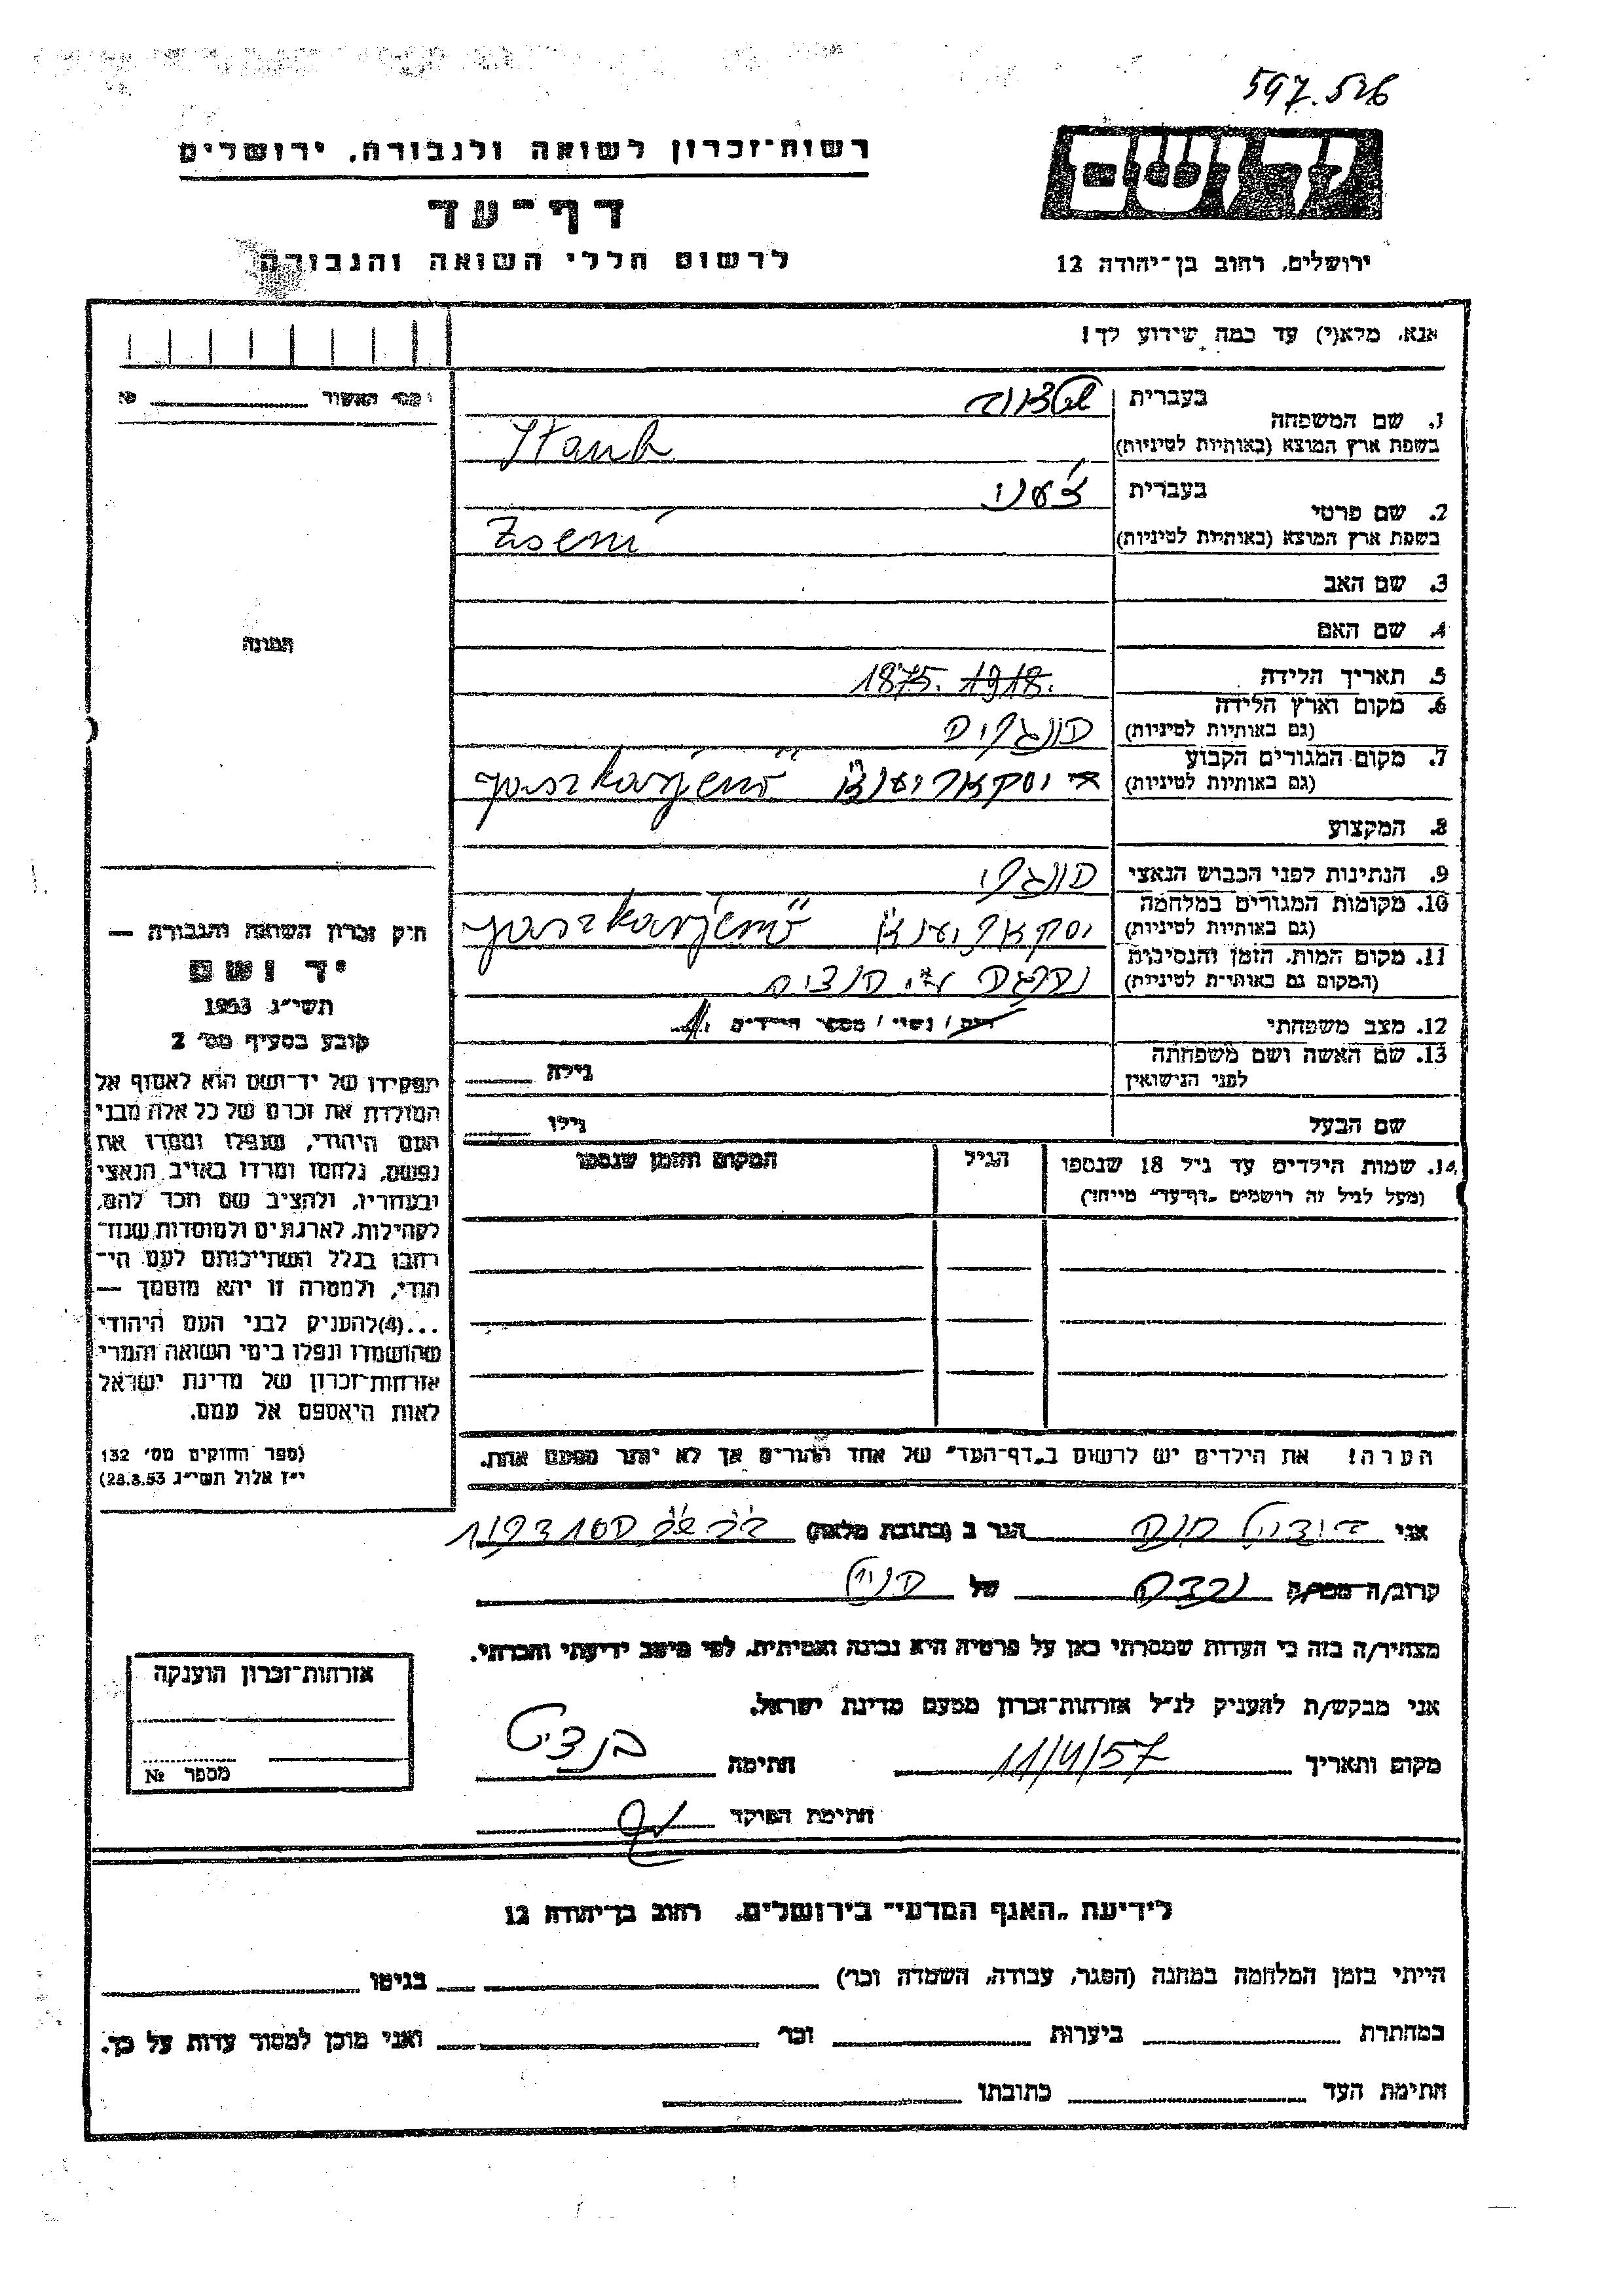 597.526
רשות־זכרון לשואה ולגבורה, ירושלים
דף־עד
לרשום חללי השואה והגבורה
ירושלים, רחוב בן־יהודה 12
אנא, מלא(י) עד כמה שידוע לך!
1. שם המשפחה
בעברית
בשפת ארץ המוצא (באותיות לטיניות)
2. שם פרטי
בעברית
ז'עני
בשפת ארץ המוצא (באותיות לטיניות) Zseni
3. שם האב
4. שם האם
5. תאריך הלידה 1918. 1875.
6. מקום וארץ הלידה
(גם באותיות לטיניות)
הונגריה
7. מקום המגורים הקבוע
(גם באותיות לטיניות)
Jaszkarjenő
8. המקצוע
9. הנתינות לפני הכבוש הנאצי
הונגרי
10. מקומות המגורים במלחמה
(גם באותיות לטיניות)
Jaszkarjenő
11. מקום המות, הזמן והנסיבות
(המקום גם באותיות לטיניות)
12. מצב משפחתי
רווק / נשוי / מספר הילדים
13. שם האשה ושם משפחתה
לפני הנישואין
גילה
שם הבעל
גילו
14. שמות הילדים עד גיל 18 שנספו
(מעל לגיל זה רושמים „דף־עד" מיוחד)
הגיל
המקום והזמן שנספו
הערה! את הילדים יש לרשום ב„דף־העד" של אחד ההורים אך לא יותר מפעם אחת.
מס' האשור №
תמונה
חוק זכרון השואה והגבורה —
יד ושם
תשי״ג 1953
קובע בסעיף מס' 2
תפקידו של יד־ושם הוא לאסוף אל
המולדת את זכרם של כל אלה מבני
העם היהודי, שנפלו ומסרו את
נפשם, נלחמו ומרדו באויב הנאצי
ובעוזריו, ולהציב שם וזכר להם,
לקהילות, לארגונים ולמוסדות שנח־
רבו בגלל השתייכותם לעם הי־
הודי, ולמטרה זו יהא מוסמך —
...(4) להעניק לבני העם היהודי
שהושמדו ונפלו בימי השואה והמרי
אזרחות־זכרון של מדינת ישראל
לאות היאספם אל עמם.
(ספר החוקים מס' 132
י״ז אלול תשי״ג 28.8.53)
אני
הגר ב (כתובת מלאה)
קרוב/ה מכר/ה נכדה של הנ״ל
מצהיר/ה בזה כי העדות שמסרתי כאן על פרטיה היא נכונה ואמיתית, לפי מיטב ידיעתי והכרתי.
אני מבקש/ת להעניק לנ״ל אזרחות־זכרון מטעם מדינת ישראל.
מקום ותאריך 11/4/57 חתימה
חתימת הפוקד
אזרחות־זכרון הוענקה
מספר №
לידיעת „האגף המדעי" בירושלים, רחוב בן־יהודה 12
הייתי בזמן המלחמה במחנה (הסגר, עבודה, השמדה וכו') בגיטו
במחתרת ביערות וכו' ואני מוכן למסור עדות על כך.
חתימת העד כתובתו